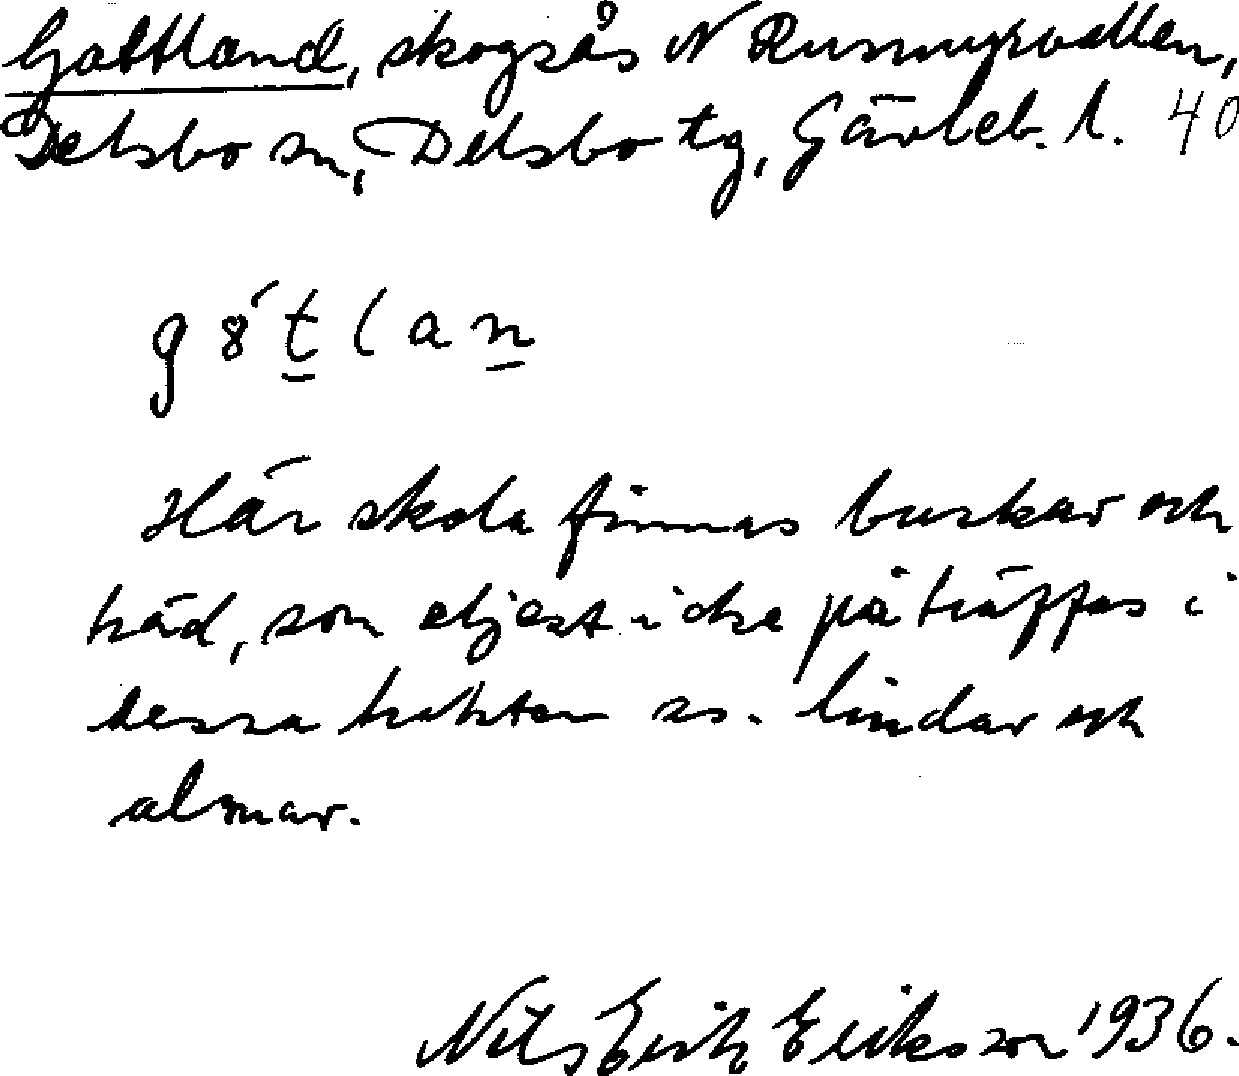 Gottland, skogsås N Runnmyrvallen,
Delsbo sn, Delsbo tg, Gävleb. l. 40
g 8́ t l a n
Här skola finnas buskar och
träd, som eljest icke påträffas i
dessa trakter ss. lindar och
almar.
Nils Erik Eriksson 1936.